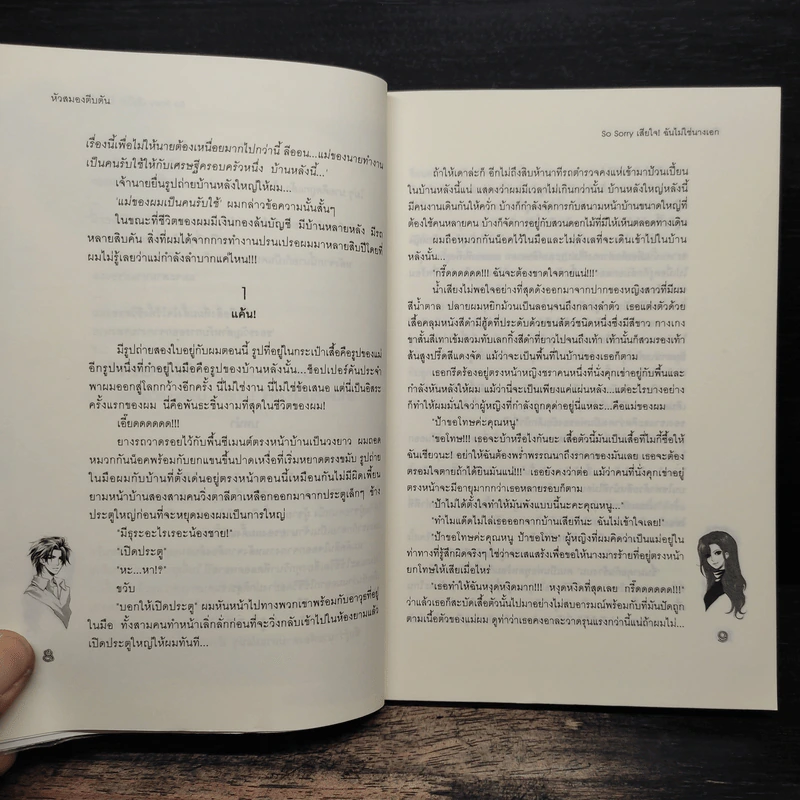 หัวสมองตีบตัน
เรื่องนี้เพื่อไม่ให้นายต้องเหนื่อยมากไปกว่านี้ ลีออน...แม่ของนายทำงาน
เป็นคนรับใช้ให้กับเศรษฐีครอบครัวหนึ่ง บ้านหลังนี้...'
เจ้านายยื่นรูปถ่ายบ้านหลังใหญ่ให้ผม...
'แม่ของผมเป็นคนรับใช้' ผมกล่าวข้อความนั้นสั้นๆ
ในขณะที่ชีวิตของผมมีเงินกองล้นบัญชี มีบ้านหลายหลัง มีรถ
หลายสิบคัน สิ่งที่ผมได้จากการทำงานปรนเปรอผมมาหลายสิบปีโดยที่
ผมไม่รู้เลยว่าแม่กำลังลำบากแค่ไหน!!!
1
แค้น!
มีรูปถ่ายสองใบอยู่กับผมตอนนี้ รูปที่อยู่ในกระเป๋าเสื้อคือรูปของแม่
อีกรูปหนึ่งที่กำอยู่ในมือคือรูปของบ้านหลังนั้น...ช็อปเปอร์คันประจำ
พาผมออกสู่โลกกว้างอีกครั้ง นี่ไม่ใช่งาน นี่ไม่ใช่ข้อเสนอ แต่นี่เป็นอิสระ
ครั้งแรกของผม นี่คือพันธะชิ้นงามที่สุดในชีวิตของผม!
เอี๊ยดดดดด!!!
ยางรถวาดรอยไว้กับพื้นซีเมนต์ตรงหน้าบ้านเป็นวงยาว ผมถอด
หมวกกันน็อคพร้อมกับยกแขนขึ้นปาดเหงื่อที่เริ่มหยาดตรงขมับ รูปถ่าย
ในมือผมกับบ้านที่ตั้งเด่นอยู่ตรงหน้าตอนนี้เหมือนกันไม่มีผิดเพี้ยน
ยามหน้าบ้านสองสามคนวิ่งตาลีตาเหลือกออกมาจากประตูเล็กๆ ข้าง
ประตูใหญ่ก่อนที่จะหยุดมองผมเป็นการใหญ่
"มีธุระอะไรเรอะน้องชาย!"
"เปิดประตู"
"หะ...หา!?"
ขวับ
"บอกให้เปิดประตู" ผมหันหน้าไปทางพวกเขาพร้อมกับอาวุธที่อยู่
ในมือ ทั้งสามคนทำหน้าเลิ่กลั่กก่อนที่จะวิ่งกลับเข้าไปในห้องยามแล้ว
เปิดประตูใหญ่ให้ผมทันที...
8
So Sorry เสียใจ! ฉันไม่ใช่นางเอก
ถ้าให้เดาล่ะก็ อีกไม่ถึงสิบห้านาทีรถตำรวจคงแห่เข้ามาป้วนเปี้ยน
ในบ้านหลังนี้แน่ แสดงว่าผมมีเวลาไม่เกินกว่านั้น บ้านหลังใหญ่หลังนี้
มีคนงานเดินกันให้ควัก บ้างก็กำลังจัดการกับสนามหน้าบ้านขนาดใหญ่ที่
ต้องใช้คนหลายคน บ้างก็จัดการอยู่กับสวนดอกไม้ที่มีให้เห็นตลอดทางเดิน
ผมถือหมวกกันน็อคไว้ในมือและไม่ลังเลที่จะเดินเข้าไปในบ้าน
หลังนั้น...
"กรี๊ดดดดดด!!! ฉันจะต้องขาดใจตายแน่!!"
น้ำเสียงไม่พอใจอย่างที่สุดดังออกมาจากปากของหญิงสาวที่มีผม
สีน้ำตาล ปลายผมหยิกม้วนเป็นลอนจนถึงกลางลำตัว เธอแต่งตัวด้วย
เสื้อคลุมหนังสีดำมีฮู้ดที่ประดับด้วยขนสัตว์ชนิดหนึ่งซึ่งมีสีขาว กางเกง
ขาสั้นสีเทาเข้มสวมทับเลกกิ้งสีดำที่ยาวไปจนถึงเท้า เท้านั้นก็สวมรองเท้า
ส้นสูงปรี๊ดสีแดงจัด แม้ว่าจะเป็นพื้นที่ในบ้านของเธอก็ตาม
เธอกรีดร้องอยู่ตรงหน้าหญิงชราคนหนึ่งที่นั่งคุกเข่าอยู่กับพื้นและ
กำลังหันหลังให้ผม แม้ว่านี่จะเป็นเพียงแค่แผ่นหลัง...แต่อะไรบางอย่าง
ก็ทำให้ผมมั่นใจว่าผู้หญิงที่กำลังถูกดุด่าอยู่นี่แหละ...คือแม่ของผม
"ป้าขอโทษค่ะคุณหนู"
"ขอโทษ!!! เธอจะบ้าหรือไงกันยะ เสื้อตัวนี้มันเป็นเสื้อที่ไมกี้ซื้อให้
ฉันเชียวนะ! อย่าให้ฉันต้องพร่ำพรรณนาถึงราคาของมันเลย เธอจะต้อง
ตรอมใจตายถ้าได้ยินมันแน่!!!" เธอยังคงว่าต่อ แม้ว่าคนที่นั่งคุกเข่าอยู่
ตรงหน้าจะมีอายุมากกว่าเธอหลายรอบก็ตาม
"ป้าไม่ได้ตั้งใจทำให้มันพังแบบนี้นะคะคุณหนู..."
"ทำไมแด๊ดไม่ไล่เธอออกจากบ้านเสียทีนะ ฉันไม่เข้าใจเลย!"
"ป้าขอโทษค่ะคุณหนู ป้าขอโทษ" ผู้หญิงที่ผมคิดว่าเป็นแม่อยู่ใน
ท่าทางที่รู้สึกผิดจริงๆ ใช่ว่าจะเสแสร้งเพื่อขอให้นางมารร้ายที่อยู่ตรงหน้า
ยกโทษให้เสียเมื่อไหร่
"เธอทำให้ฉันหงุดหงิดมาก!!! หงุดหงิดที่สุดเลย กรี๊ดดดดดด!!!"
ว่าแล้วเธอก็สะบัดเสื้อตัวนั้นไปมาอย่างไม่สบอารมณ์พร้อมกับที่มันปัดถูก
ตามเนื้อตัวของแม่ผม ดูท่าว่าเธอคงอาละวาดรุนแรงกว่านี้แน่ถ้าผมไม่...
9